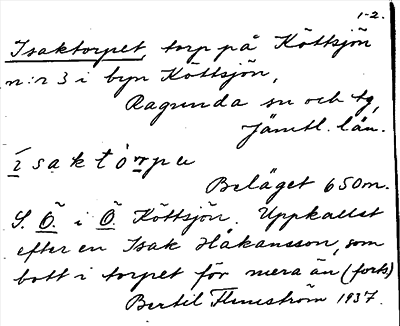 1-2.
Isaktorpet, torp på Köttsjön
n:r 3 i byn Köttsjön,
Ragunda sn och tg,
Jämtl. län.
ísaktòrpa
Beläget 650 m.
S. Ö. i Ö. Köttsjön. Uppkallat
efter en Isak Håkansson, som
bott i torpet för mera än (forts)
Bertil Flemström 1937.